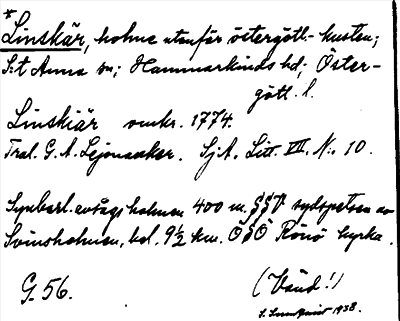 *
Linskär, holme utanför östergötl.-kusten;
S:t Anna sn; Hammarkinds hd; Öster-
götl. l.
Linskiär omkr. 1774.
Tral. G. A. Lejonanker. SjA, Litt. VII, N:o 10.
Synbarl. avsågs holmen 400 m. SSV sydspetsen av
Svinsholmen, bel. 9½ km. OSO Rönö kyrka.
G. 56.
(Vänd!)
1938.